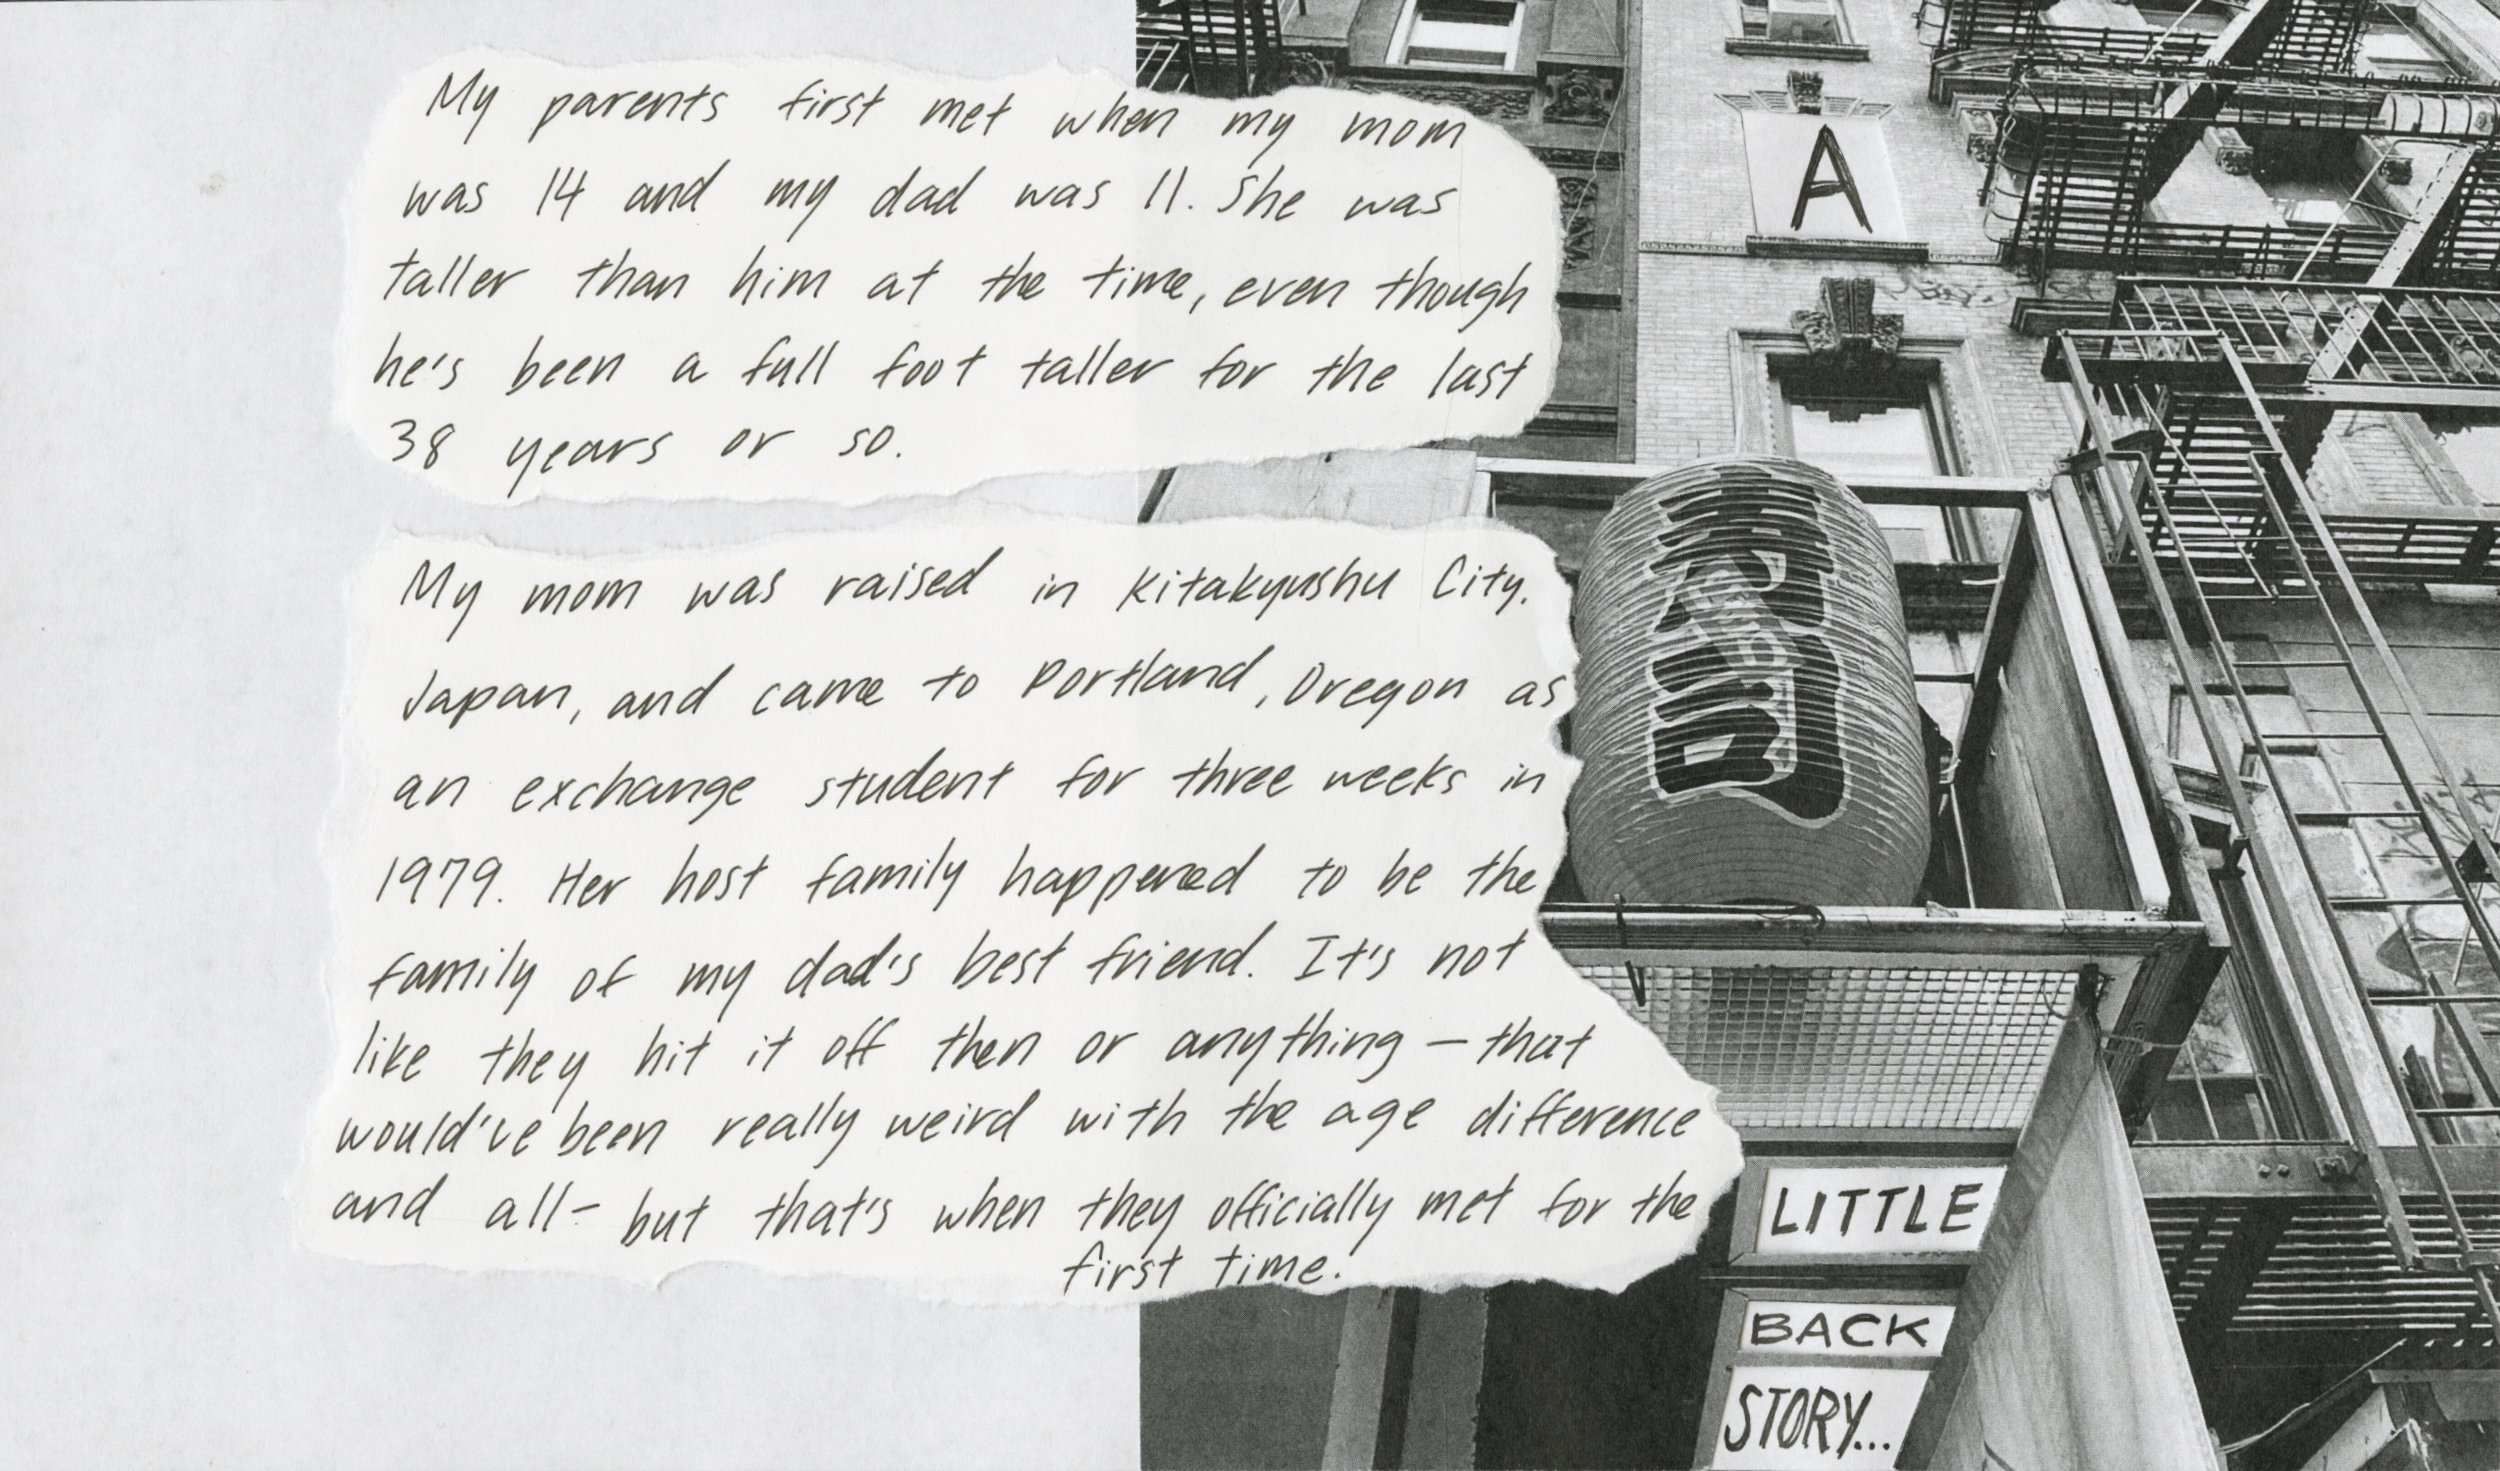 My parents first met when my mom
was 14 and my dad was 11. She was
taller than him at the time, even though
he's been a full foot taller for the last
38 years or so.
My mom was raised in Kitakyushu City.
Japan, and came to Portland, Oregon as
an exchange student for three weeks in
1979. Her host family happened to be the
family of my dad's best friend. It's not
like they hit it off then or anything – that
would've been really weird with the age difference
and all – but that's when they officially met for the
first time.
A
寿司
LITTLE
BACK
STORY...